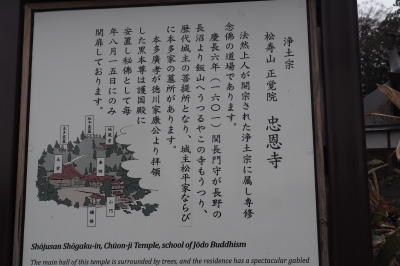 浄土宗
松寿山 正覚院 忠恩寺
法然上人が開宗された浄土宗に属し専修
念佛の道場であります。
慶長六年（一六〇一）関長門守が長野の
長沼より飯山へうつるやこの寺もうつり、
歴代城主の菩提所となり、城主松平家ならび
に本多家の墓所があります。
本多廣孝が徳川家康公より拝領
した黒本尊は護国殿に
安置し秘佛として毎
年八月一五日にのみ
開扉しております。
Shōjusan Shōgaku-in, Chūon-ji Temple, school of Jōdo Buddhism
The main hall of this temple is surrounded by trees, and the residence has a spectacular gabled